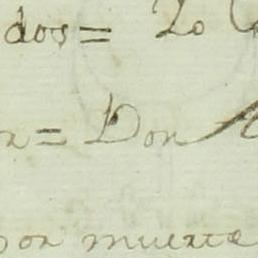 dos = Lo
= Don
por muerte